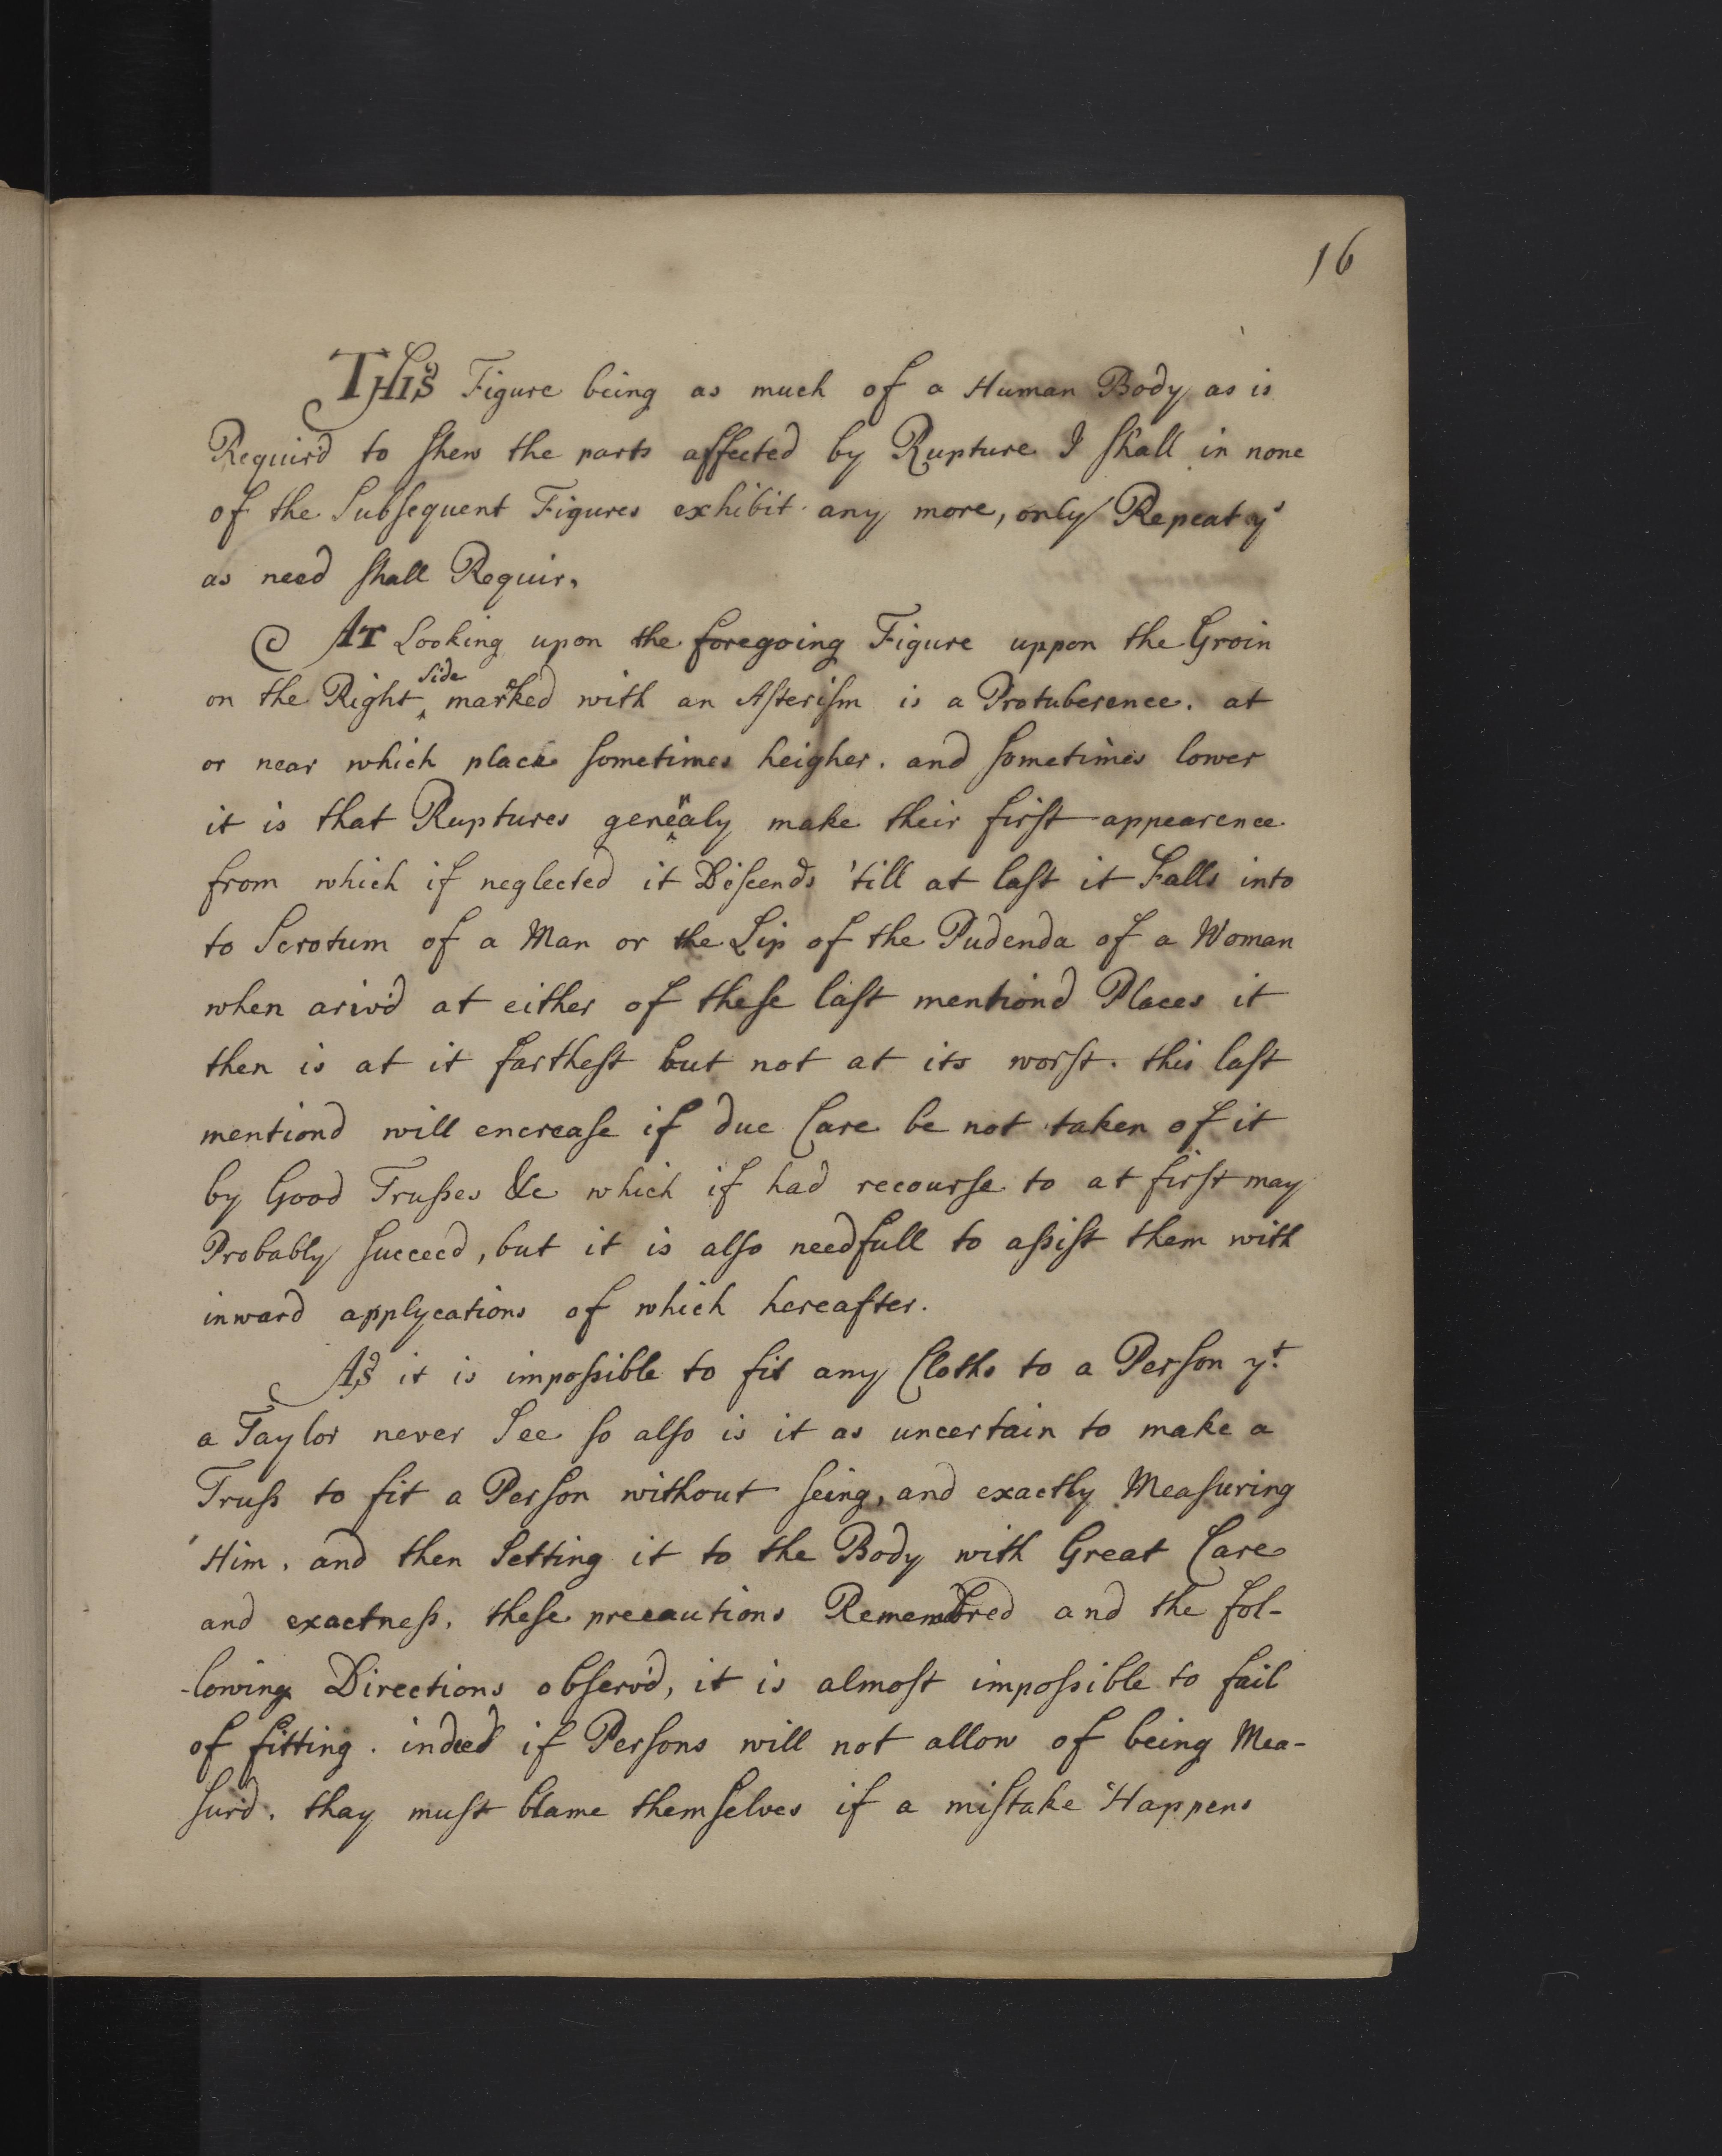 16
THIS Figure being as much of a Human Body as is
Requir'd to ſhew the parts affected by Rupture I ſhall in none
of the Subſequent Figures exhibit any more, only Repeat yˢ
as need ſhall Requir,
AT Looking upon the foregoing Figure uppon the Groin
on the Right ‸side marked with an Aſteriſm is a Protuberence. at
or near which place ſometimes heigher. and ſometimes lower
it is that Ruptures gene‸raly make their firſt appearence
from which if neglected it Diſcends 'till at laſt it Falls into
to Scrotum of a Man or the Lip of the Pudenda of a Woman
when ariv'd at either of theſe laſt mentiond Places it
then is at it fartheſt but not at its worſt. this laſt
mentiond will encreaſe if due Care be not taken of it
by Good Truſses &c which if had recourſe to at firſt may
Probably ſucceed, but it is alſo needfull to aſsiſt them with
inward applycations of which hereafter.
AS it is impoſsible to fit any Cloths to a Perſon yᵗ.
a Taylor never See ſo alſo is it as uncertain to make a
Truſs to fit a Perſon without ſeing, and exactly Meaſuring
Him, and then Setting it to the Body with Great Care
and exactneſs, theſe precautions Remembred and the fol-
-lowing Directions obſerv'd, it is almoſt impoſsible to fail
of fitting. indeed if Perſons will not allow of being Mea-
ſur'd, thay muſt blame themſelves if a miſtake Happens